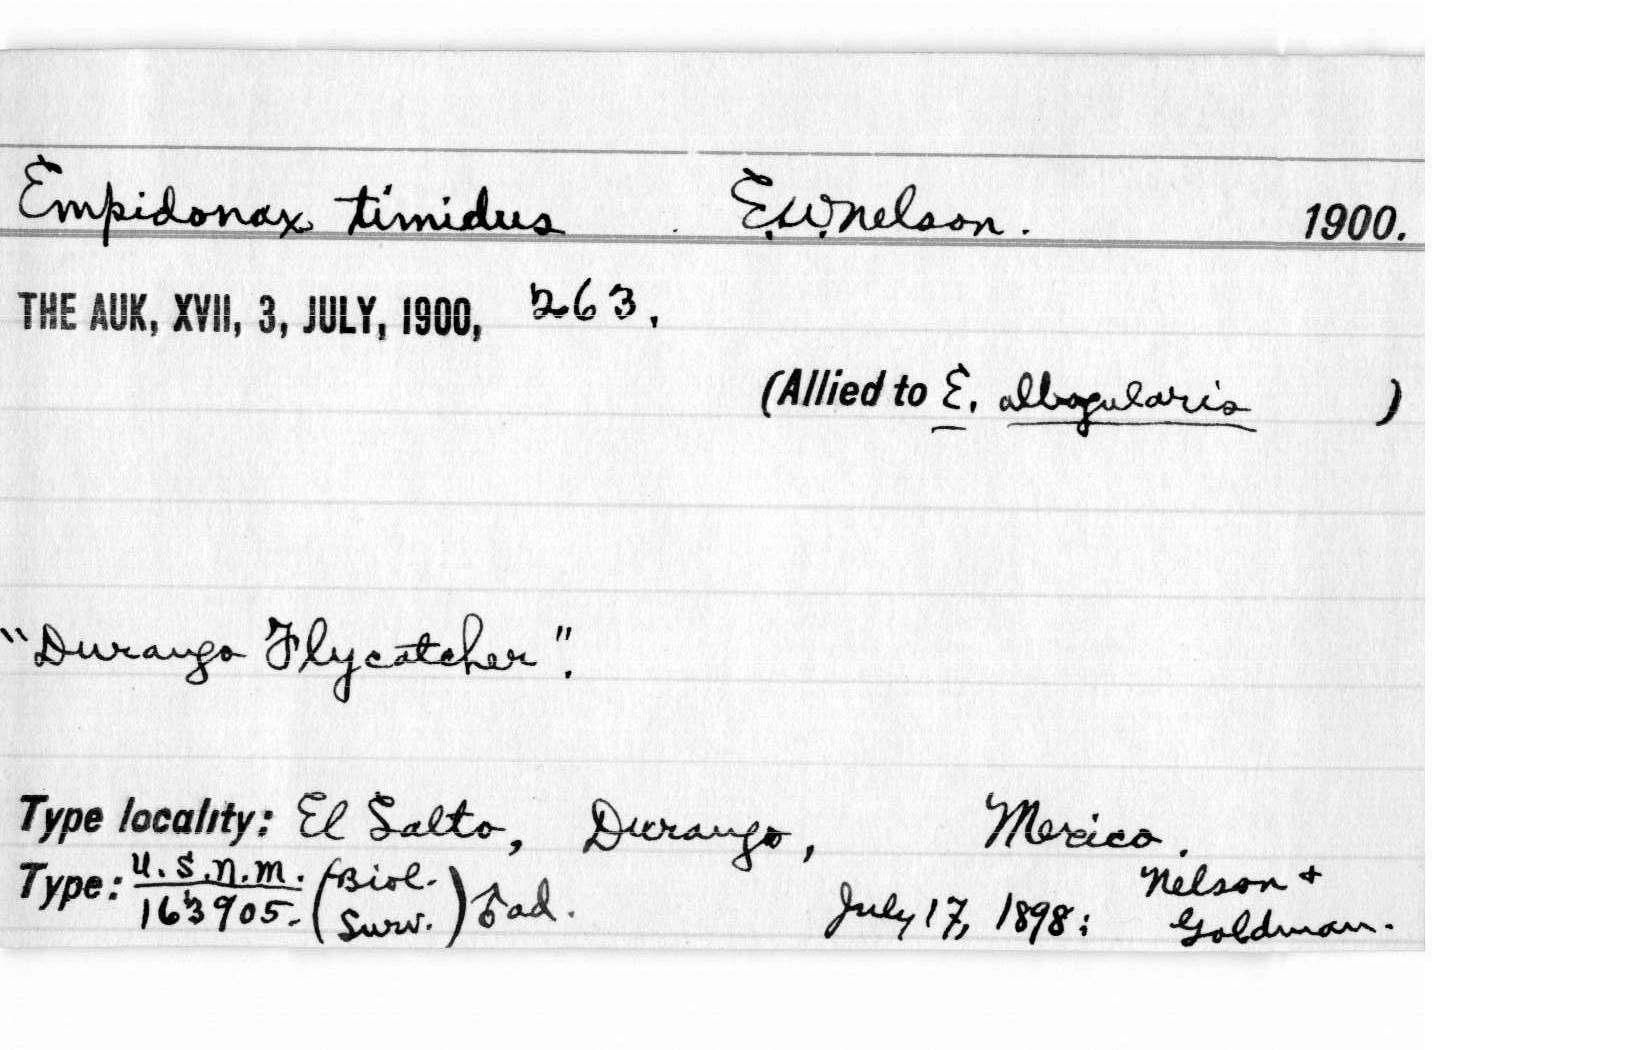 Empidonax timidus E.W.Nelson. 1900.
THE AUK, XVII, 3, JULY, 1900, 263.
(Allied to E. albogularis )
"Durango Flycatcher".
Type locality: El Salto, Durango, Mexico.
Type: U.S.N.M. 163905. (Biol. Surv.) ♂ ad. July 17, 1898: Nelson + Goldman.